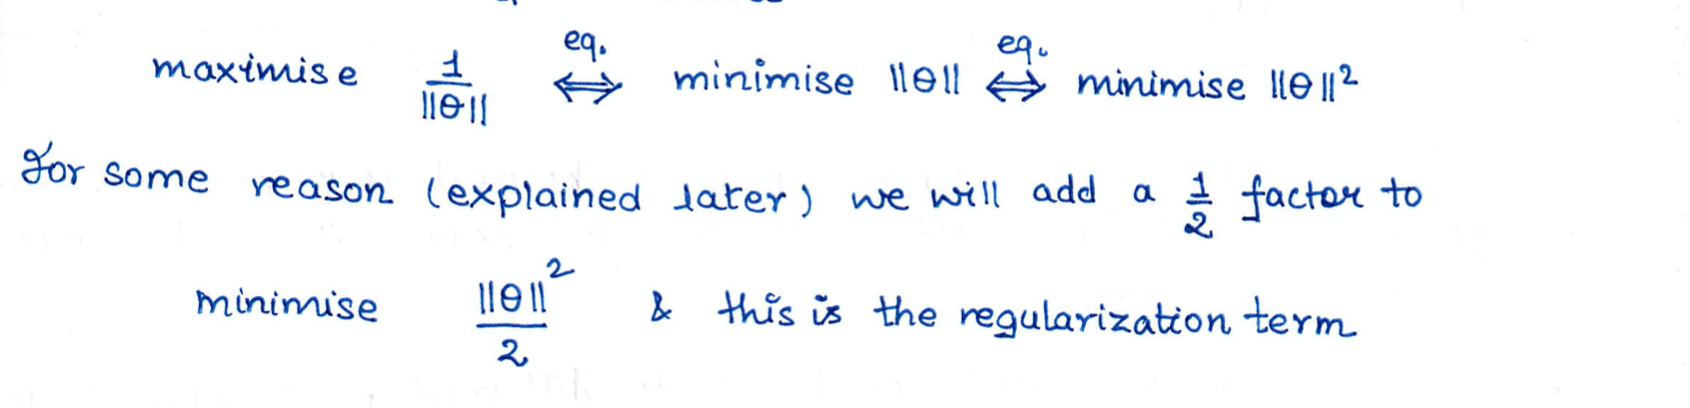 maximise 1/||θ|| ⟺ eq. minimise ||θ|| ⟺ eq. minimise ||θ||²
For some reason (explained later) we will add a 1/2 factor to
minimise ||θ||²/2 & this is the regularization term